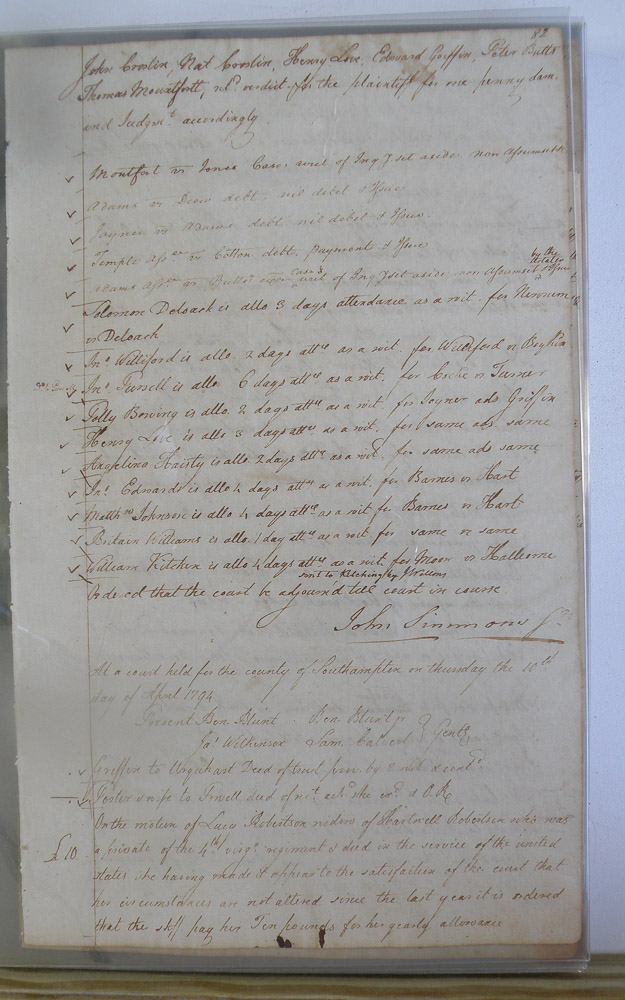 82
John Corslin, Nat Corslin, Henry Love, Edward Griffin, Peter Butts
Thomas Mountfortt, re.d verdict for the plaintiff for one penny dam.
and Judgm.t accordingly.
Montfort vs Jones Case, writ of Inq.y set aside non Assumsit &
Adams vs Drew debt. nil debet & Issue
Joyner vs Adams debt nil debet & Issue
Temple Ass.ee vs Cotton debt. payment & Issue
by the
Adams Ass.ee vs Butts Case writ of Inq.y set aside non Assumsit & Issue
Solomon Deloach is allo 3 days attendance as a wit. for Newsum
vs Deloach
Jn.o Williford is allo. 2 days att.ce as a wit. for Williford vs Boykin
Jn.o Fussell is allo 6 days att.ce as a wit. for Cocke vs Turner
Polly Bowing is allo. 2 days att.ce as a wit. for Joyner ads Griffin
Henry Love is allo 3 days att.ce as a wit. for same ads. same
Angelina Haisty is allo. 2 days att.ce as a wit. for same ads same
Jn.o Edwards is allo 4 days att.ce as a wit. for Barnes vs Hart
Matth.w Johnson is allo 4 days att.ce as a wit. for Barnes vs Hart
Britain Williams is allo. 1 day att.ce as a wit. for same vs same
William Kitchen is allo 4 days att.ce as a wit. for Moore vs Hallcome
sent to Kitching by J Williams
Ordered that the court be adjourn'd till court in course
John Simmons
At a court held for the county of Southampton on thursday the 10th
day of April 1794
Present Ben. Blunt Ben. Blunt jr
Ja.s Wilkinson Sam. Calvert } Gent.s
Griffin to Urquhart Deed of trust prov. by 2 wit. & cont.d
Foster & wife to Sewell deed of
On the motion of Lucy Robertson widow of Hartwell Robertson who was
£10 a private of the 4th virg.a regiment & died in the service of the united
states she having made it appear to the satisfaction of the court that
her circumstances are not altered since the last year it is ordered
that the shff pay her Ten pounds for her yearly allowance